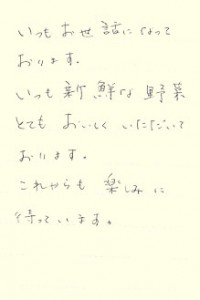 いつもお世話になって
おります。
いつも新鮮な野菜
とても おいしく いただいて
おります。
これからも 楽しみに
待っています。